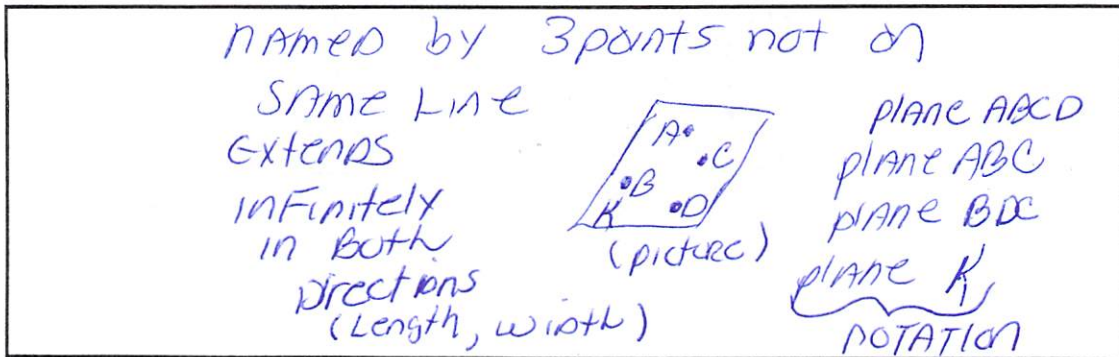 named by 3 points not on
same line
extends
infinitely
in both
directions
(length, width)
A
C
B
K
D
(picture)
plane ABCD
plane ABC
plane BDC
plane K
notation